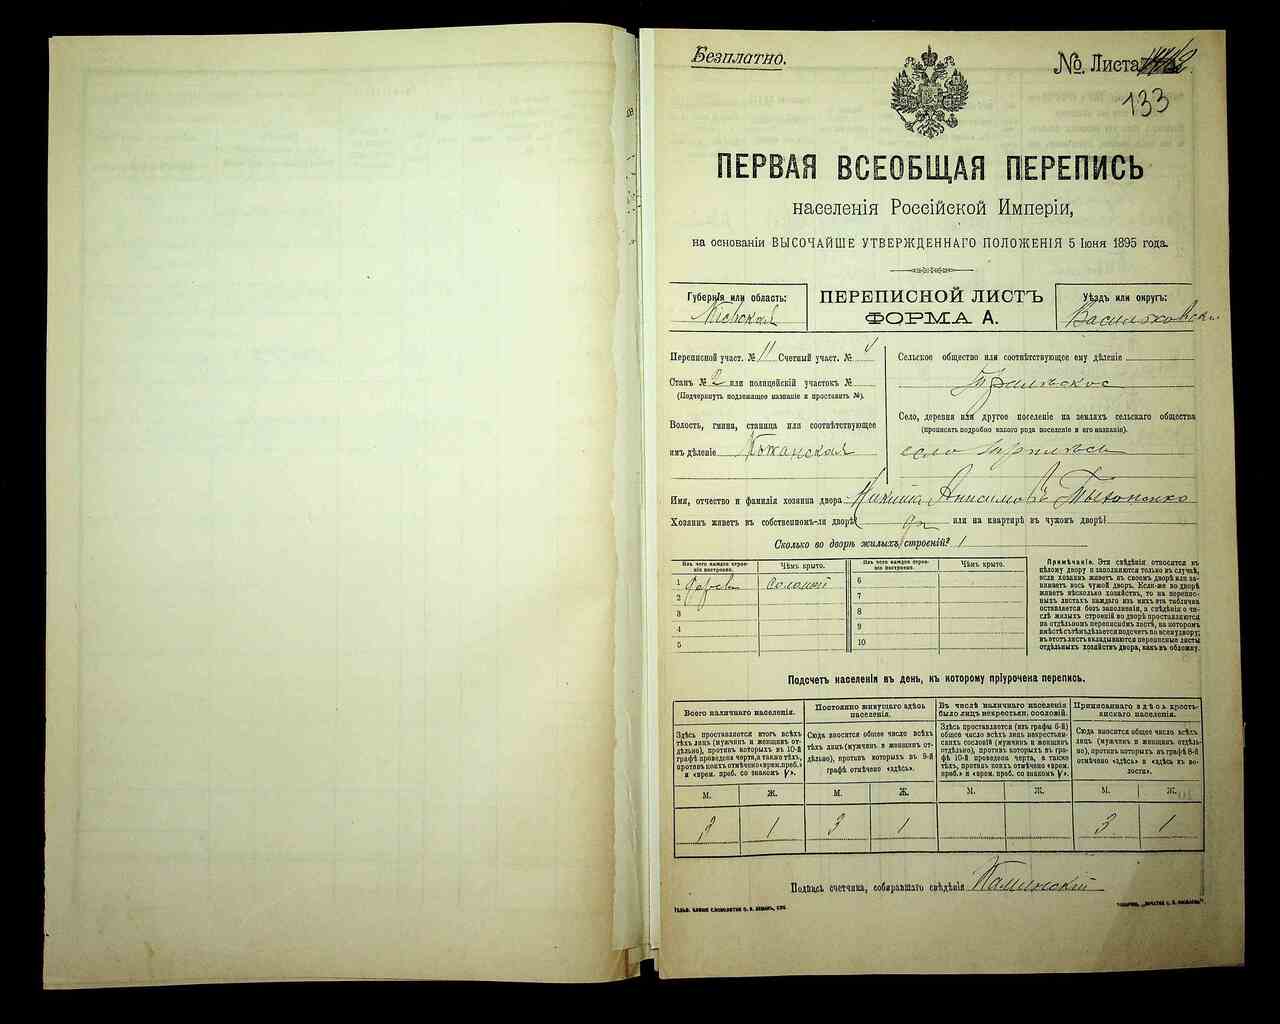 Безплатно.
№ Листа
133
ПЕРВАЯ ВСЕОБЩАЯ ПЕРЕПИСЬ
населенія Россійской Имперіи,
на основаніи ВЫСОЧАЙШЕ УТВЕРЖДЕННАГО ПОЛОЖЕНІЯ 5 Іюня 1895 года.
Губернія или область:
Кіевская
ПЕРЕПИСНОЙ ЛИСТЪ
ФОРМА А.
Уѣздъ или округъ:
Васильковскі
Переписной участ. № 11 Счетный участ. № 4
Станъ № 2 или полицейскій участокъ №
(Подчеркнуть подлежащее названіе и проставить №).
Волость, гмина, станица или соотвѣтствующее
имъ дѣленіе Кожанская
Сельское общество или соотвѣтствующее ему дѣленіе
Село, деревня или другое поселеніе на земляхъ сельскаго общества
(прописать подробно какого рода поселеніе и его названіе).
село
Имя, отчество и фамилія хозяина двора Никита Анисимовъ Тихоненко
Хозяинъ живетъ въ собственномъ-ли дворѣ? да или на квартирѣ въ чужомъ дворѣ?
Сколько во дворѣ жилыхъ строеній? 1
Изъ чего каждое строе-
ніе построено.
Чѣмъ крыто.
Изъ чего каждое строе-
ніе построено.
Чѣмъ крыто.
1 дерев. соломой
2
3
4
5
6
7
8
9
10
Примѣчаніе. Эти свѣдѣнія относятся къ
цѣлому двору и заполняются только въ случаѣ,
если хозяин живетъ въ своемъ дворѣ или за-
нимаетъ весь чужой дворъ. Если-же во дворѣ
живетъ нѣсколько хозяйствъ, то на перепис-
ныхъ листахъ каждаго изъ нихъ эта табличка
оставляется безъ заполненія, а свѣдѣнія о чи-
слѣ жилыхъ строеній во дворѣ проставляются
на отдѣльномъ переписномъ листѣ, на которомъ
вмѣстѣ съ тѣмъ дѣлается подсчетъ по всему двору;
въ этотъ листъ вкладываются переписные листы
отдѣльныхъ хозяйствъ двора, какъ въ обложку.
Подсчетъ населенія въ день, къ которому пріурочена перепись.
Всего наличнаго населенія.
Постоянно живущаго здѣсь
населенія.
Въ числѣ наличнаго населенія
было лицъ некрестьян. сословій.
Приписаннаго здѣсь кресть-
янскаго населенія.
Здѣсь проставляется итогъ всѣхъ
тѣхъ лицъ (мужчинъ и женщинъ от-
дѣльно), противъ которыхъ въ 10-й
графѣ проведена черта, а также тѣхъ,
противъ коихъ отмѣчено «врем. преб.»
и «врем. преб. со знакомъ V».
Сюда вносится общее число всѣхъ
тѣхъ лицъ (мужчинъ и женщинъ от-
дѣльно), противъ которыхъ въ 9-й
графѣ отмѣчено «здѣсь».
Здѣсь проставляется (изъ графы 6-й)
общее число всѣхъ лицъ некрестьян-
скихъ сословій (мужчинъ и женщинъ
отдѣльно), противъ которыхъ въ гра-
фѣ 10-й проведена черта, а также
тѣхъ, противъ коихъ отмѣчено «врем.
преб.» и «врем. преб. со знакомъ V».
Сюда вносится общее число всѣхъ
лицъ (мужчинъ и женщинъ отдѣль-
но), противъ которыхъ въ графѣ 8-й
отмѣчено «здѣсь» и «здѣсь въ во-
лости».
М. Ж. М. Ж. М. Ж. М. Ж.
3 1 3 1 3 1
Подпись счетчика, собиравшаго свѣдѣнія Калинскій